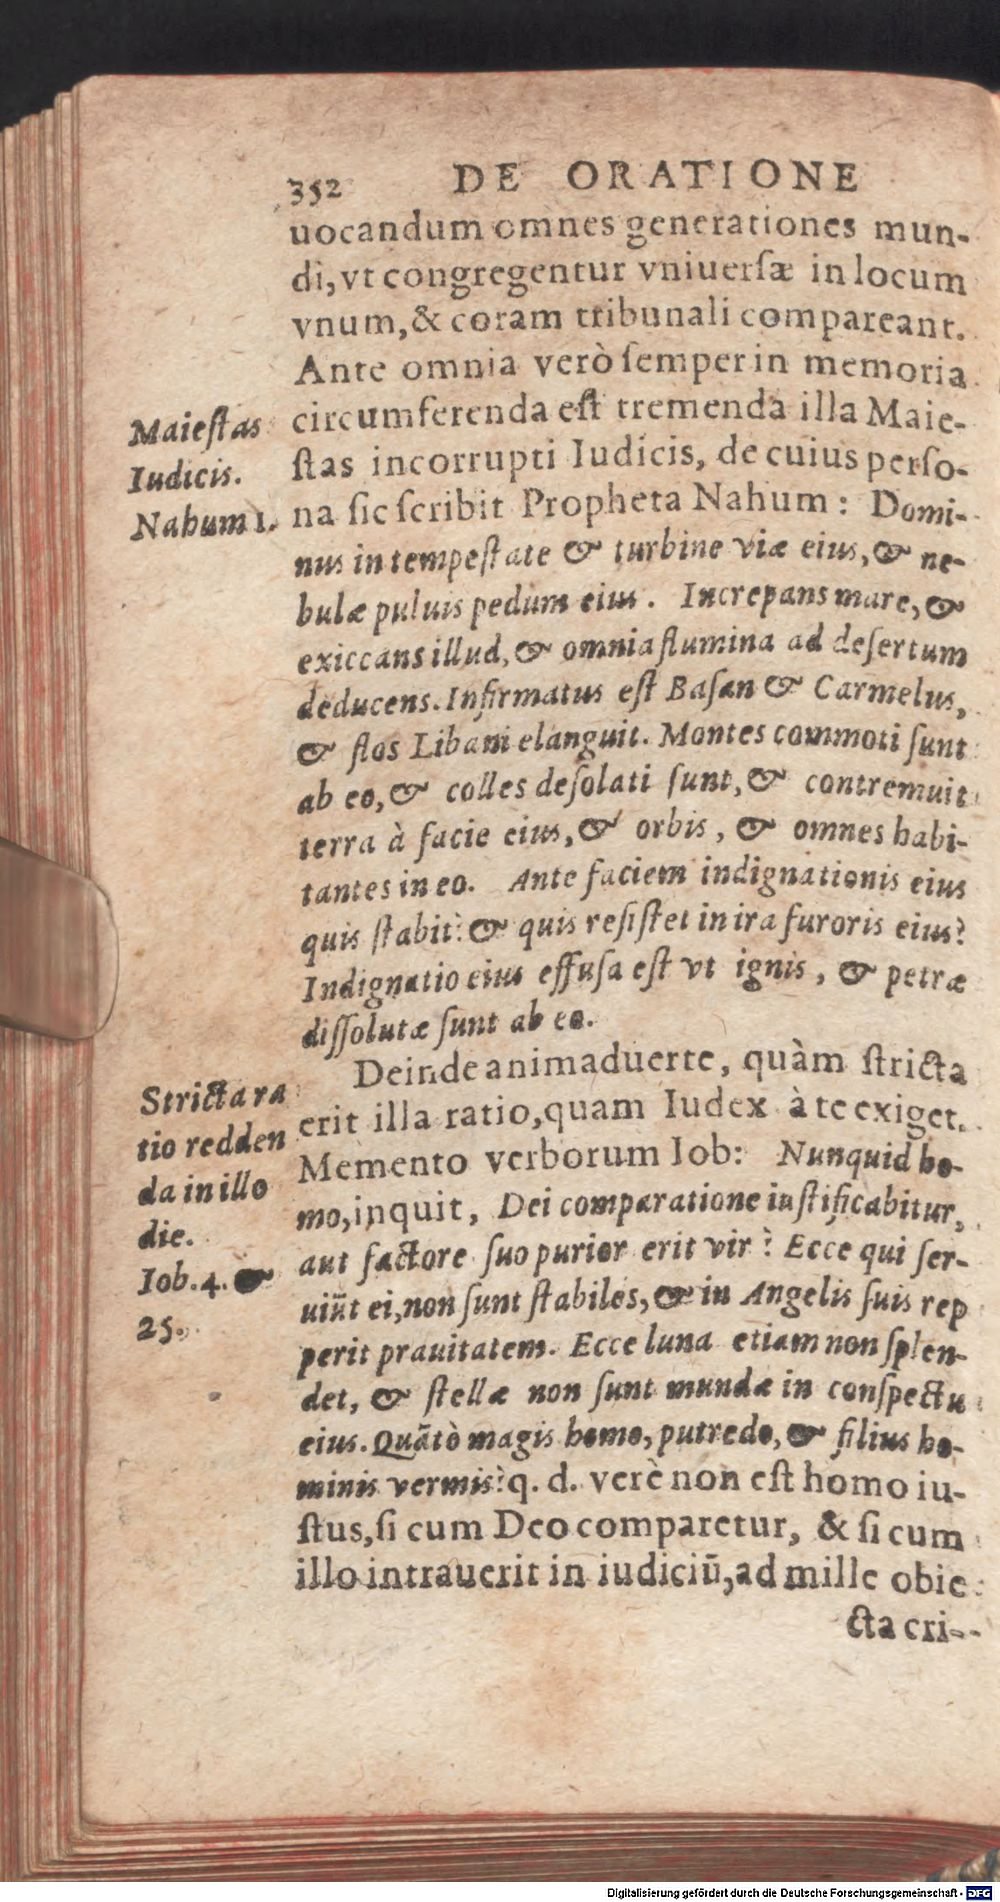 352 DE ORATIONE
uocandum omnes generationes mun-
di, vt congregentur vniuersæ in locum
vnum, & coram tribunali compareant.
Ante omnia verò semper in memoria
circumferenda est tremenda illa Maie-
stas incorrupti Iudicis, de cuius perso-
na sic scribit Propheta Nahum: Domi-
nus in tempestate & turbine viæ eius, & ne-
bulæ puluis pedum eius. Increpans mare, &
exiccans illud, & omnia flumina ad desertum
deducens. Infirmatus est Basan & Carmelus,
& flos Libani elanguit. Montes commoti sunt
ab eo, & colles desolati sunt, & contremuit
terra à facie eius, & orbis, & omnes habi-
tantes in eo. Ante faciem indignationis eius
quis stabit? & quis resistet in ira furoris eius?
Indignatio eius effusa est vt ignis, & petræ
dissolutæ sunt ab eo.
Maiestas
Iudicis.
Nahum 1.
Deinde animaduerte, quàm stricta
erit illa ratio, quam Iudex à te exiget.
Memento verborum Iob: Nunquid ho-
mo, inquit, Dei comparatione iustificabitur,
aut factore suo purior erit vir? Ecce qui ser-
uiũt ei, non sunt stabiles, & in Angelis suis rep
perit prauitatem. Ecce luna etiam non splen-
det, & stellæ non sunt mundæ in conspectu
eius. Quãtò magis homo, putredo, & filius ho-
minis vermis? q. d. verè non est homo iu-
stus, si cum Deo comparetur, & si cum
illo intrauerit in iudiciũ, ad mille obie
cta cri--
Stricta ra
tio redden
da in illo
die.
Iob. 4. &
25.
Digitalisierung gefördert durch die Deutsche Forschungsgemeinschaft - DFG